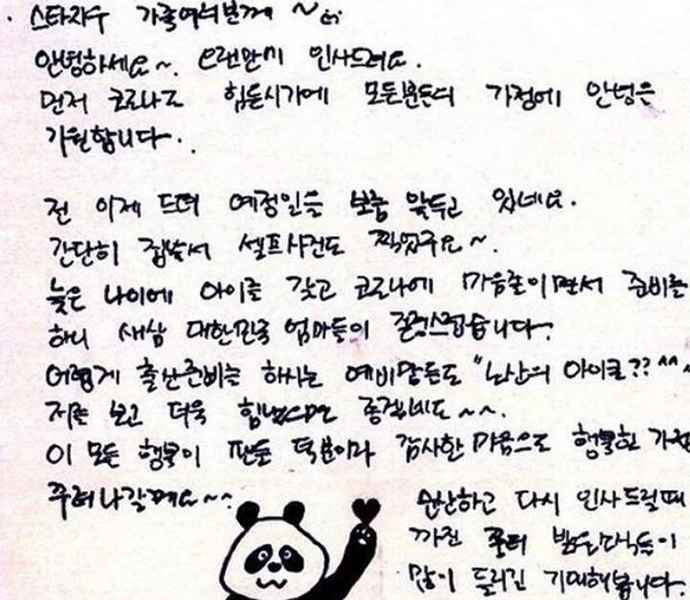 · 스타자수 가족여러분께 ~
안녕하세요~. 오랜만에 인사드려요.
먼저 코로나로 힘든시기에 모든분들의 가정에 안녕을
기원합니다.
전 이제 드뎌 예정일을 보름 앞두고 있네요.
간단히 집에서 셀프사진도 찍었구요~.
늦은 나이에 아이를 갖고 코로나에 마음졸이면서 준비를
하니 새삼 대한민국 엄마들이 존경스럽습니다.
어렵게 출산준비를 하시는 예비맘들도 "노산의 아이콘?? ^^~
저를 보고 더욱 힘냈으면 좋겠네요~~.
이 모든 행복이 팬들 덕분이라 감사한 마음으로 행복한 가정
꾸려나갈께요~~.
순산하고 다시 인사드릴때
까진 밝은소식들이
많이 들리길 기대해봅니다.